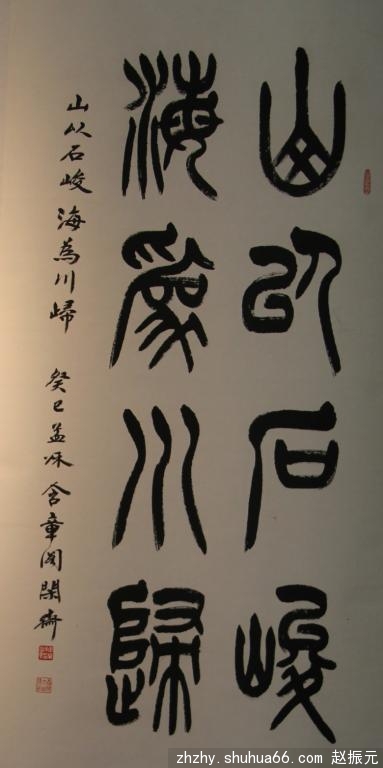 山以石峻
海為川歸
山以石峻 海為川歸 癸巳孟秋 含章阁閑齋
zhzhy.shuhua66.com 赵振元